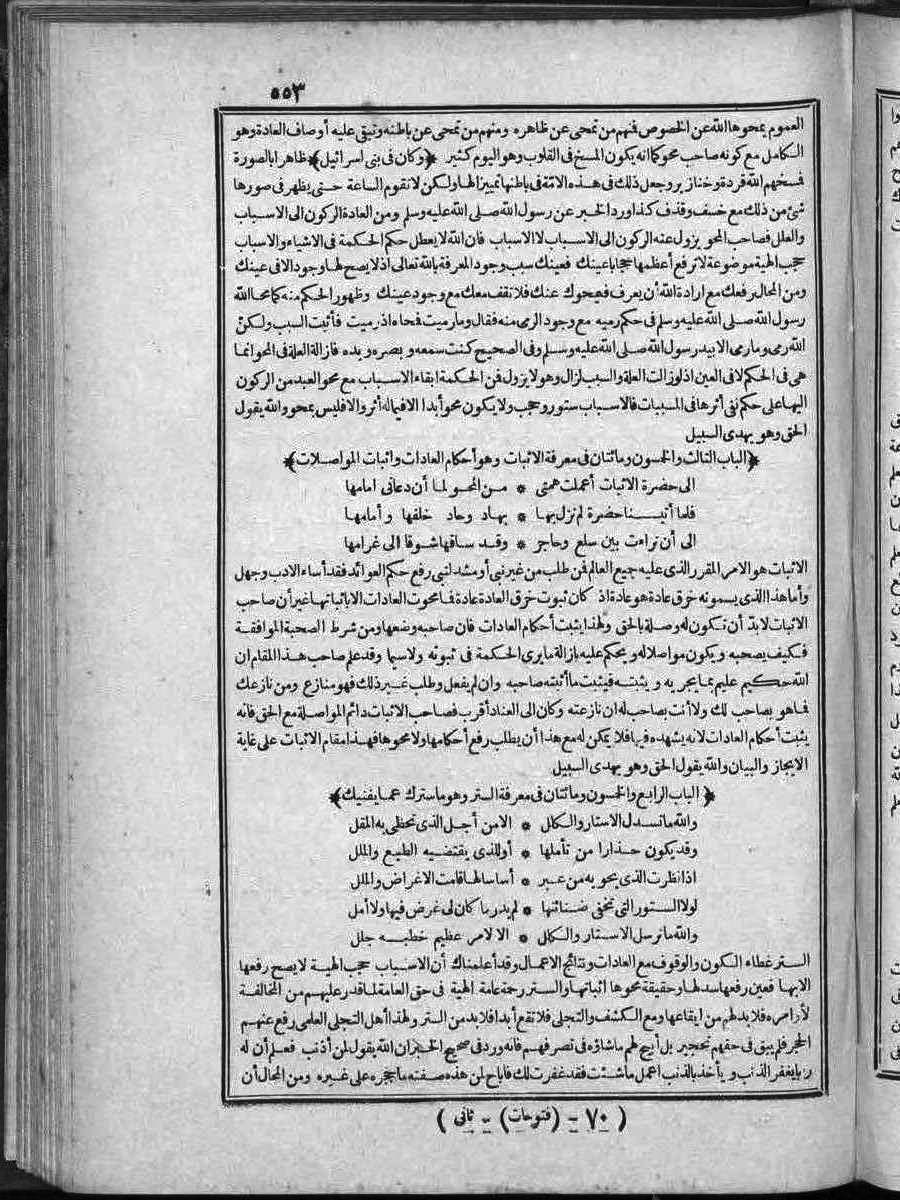 ٥٥٣
العموم يمحوها الله عن الخصوص فمنهم من تمحى عن ظاهره ومنهم من تمحى عن باطنه وتبقى عليه أوصاف العادة وهو
الكامل مع كونه صاحب محو كما انه يكون المسخ فى القلوب وهو اليوم كثير ﴿وكان فى بنى اسرائيل﴾ ظاهرا بالصورة
فمسخهم الله قردة وخنازير وجعل ذلك فى هذه الامّة فى باطنها تمييزا لها ولكن لا تقوم الساعة حتى يظهر فى صورها
شئ من ذلك مع خسف وقذف كذا ورد الخبر عن رسول الله صلى الله عليه وسلم ومن العادة الركون الى الاسباب
والعلل فصاحب المحو يزول عنه الركون الى الاسباب لا الاسباب فان الله لا يعطل حكم الحكمة فى الاشياء والاسباب
حجب الهية موضوعة لا ترفع أعظمها حجابا عينك فعينك سبب وجود المعرفة بالله تعالى اذ لا يصح لها وجود الا فى عينك
ومن المحال رفعك مع ارادة الله أن يعرف فيمحوك عنك فلا تقف معك مع وجود عينك وظهور الحكم منه كما محا الله
رسول الله صلى الله عليه وسلم فى حكم رميه مع وجود الرمى منه فقال وما رميت فمحاه اذ رميت فأثبت السبب ولكنّ
الله رمى وما رمى الا بيد رسول الله صلى الله عليه وسلم وفى الصحيح كنت سمعه وبصره ويده فازالة العلة فى المحو انما
هى فى الحكم لا فى العين اذ لو زالت العلة والسبب لزال وهو لا يزول فمن الحكمة ابقاء الاسباب مع محو العبد من الركون
اليها على حكم نفى أثرها فى المسببات فالاسباب ستور وحجب ولا يكون محو أبدا الا فيما له أثر والا فليس بمحو والله يقول
الحق وهو يهدى السبيل
﴿الباب الثالث والخمسون ومائتان فى معرفة الاثبات وهو أحكام العادات واثبات المواصلات﴾
الى حضرة الاثبات أعملت همتى * من المحو لما أن دعانى امامها
فلما أتينا حضرة لم نزل بها * بهاد وحاد خلفها وأمامها
الى أن تراءت بين سلع وحاجر * وقد ساقها شوقا الى غرامها
الاثبات هو الامر المقرر الذى عليه جميع العالم فمن طلب من غير نبى أو مشد لنبى رفع حكم العوائد فقد أساء الادب وجهل
وأما هذا الذى يسمونه خرق عادة هو عادة اذ كان ثبوت خرق العادة عادة فما محوت العادات الا باثباتها غير أن صاحب
الاثبات لا بدّ أن تكون له وصلة بالحق ولهذا يثبت أحكام العادات فان صاحبه وضعها ومن شرط الصحبة الموافقة
فكيف يصحبه ويكون مواصلا له ويحكم عليه بازالة ما يرى الحكمة فى ثبوته ولا سيما وقد علم صاحب هذا المقام ان
الله حكيم عليم بما يجريه ويثبته فيثبت ما أثبته صاحبه وان لم يفعل وطلب غير ذلك فهو منازع ومن نازعك
فما هو بصاحب لك ولا أنت بصاحب له ان نازعته وكان الى العناد أقرب فصاحب الاثبات دائم المواصلة مع الحق فانه
يثبت أحكام العادات لانه يشهده فيها فلا يمكن له مع هذا أن يطلب رفع أحكامها ولا محوها فهذا مقام الاثبات على غاية
الايجاز والبيان والله يقول الحق وهو يهدى السبيل
﴿الباب الرابع والخمسون ومائتان فى معرفة الستر وهو ما سترك عما يفنيك﴾
والله ما تسدل الاستار والكلل * الا من أجل الذى تحظى به المقل
وقد يكون حذارا من تأملها * أو للذى يقتضيه الطبع والملل
اذا نظرت الذى يحويه من عبر * أساسا لها قامت الاغراض والملل
لولا الستور التى تخفى ضنائنها * لم يدر ما كان لى غرض فيها ولا أمل
والله ما ترسل الاستار والكلل * الا لامر عظيم خطبه جلل
الستر غطاء الكون والوقوف مع العادات ونتائج الاعمال وقد أعلمناك أن الاسباب حجب الهية لا يصح رفعها
الا بها فعين رفعها سدلها وحقيقة محوها اثباتها والستر رحمة عامة الهية فى حق العامة لما قدر عليهم من المخالفة
لأوامره فلا بد لهم من ايقاعها ومع الكشف والتجلى فلا تقع أبدا فلا بد من الستر ولهذا أهل التجلى العلمى رفع عنهم
الحجر فلم يبق فى حقهم تحجير بل أبيح لهم ما شاؤه فى تصرفهم فانه ورد فى صحيح الخبر ان الله يقول لمن أذنب فعلم أن له
ربا يغفر الذنب ويأخذ بالذنب اعمل ما شئت فقد غفرت لك فاباح لمن هذه صفته ما حجره على غيره ومن المحال أن
( ٧٠ - (فتوحات) - ثانى )